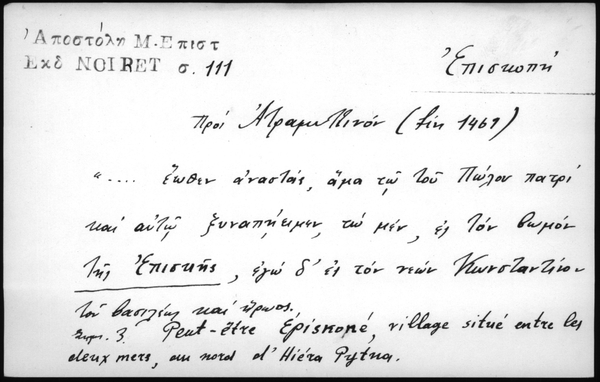 Ἀποστόλη Μ. Επιστ
Εκδ NOIRET σ. 111
Ἐπισκοπή
Προς Ἀτραμυττινόν (fin 1461)
".... ἕωθεν ἀναστάς, ἅμα τῷ τοῦ Παύλου πατρί
καί αὐτῷ ξυναπῄειμεν, τώ μέν, ἐς τόν βωμόν
τῆς Ἐπισκῆς, ἐγώ δ' ἐς τόν νεών Κωνσταντίνου
τοῦ βασιλέως καί ἥρωος.
Σημ. 3. Peut-être Episkopé, village situé entre les
deux mers, au nord d'Hiéra Pytna.